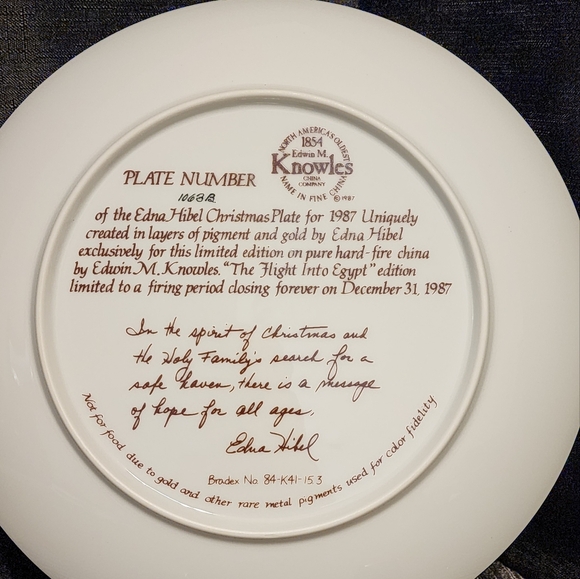 NORTH AMERICA'S OLDEST
1854
Edwin M.
Knowles
CHINA
COMPANY
NAME IN FINE CHINA
© 1987
PLATE NUMBER
1063B
of the Edna Hibel Christmas Plate for 1987 Uniquely
created in layers of pigment and gold by Edna Hibel
exclusively for this limited edition on pure hard-fire china
by Edwin M. Knowles. "The Flight Into Egypt" edition
limited to a firing period closing forever on December 31, 1987
In the spirit of Christmas and
the Holy Family's search for a
safe haven, there is a message
of hope for all ages.
Edna Hibel
Bradex No. 84-K41-15.3
Not for food due to gold and other rare metal pigments used for color fidelity